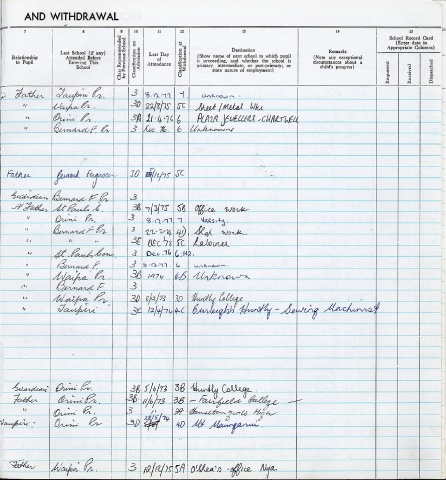 AND WITHDRAWAL
7 8 9 10 11 12 13 14 15
Relationship to Pupil
Last School (if any) Attended Before Entering This School
Class Recommended by Previous School
Classification on Admission
Last Day of Attendance
Classification at Withdrawal
Destination
(Show name of next school to which pupil is proceeding, and whether the school is primary, intermediate, or post-primary; or state nature of employment)
Remarks
(Note any exceptional circumstances about a child's progress)
School Record Card
(Enter date in Appropriate Columns)
Requested Received Dispatched
Father Taupiri Pr. 3 8.12.77 7 unknown
" Waipa Pr. 3D 22/8/75 5C Sheet/Metal Wks
" Orini Pr. 3A 21.6.76 6 PLAZA JEWELLERS - CHARTWELL
" Bernard F Pr. 3 Dec 76 6 Unknown
Father Bernard Ferguson 3D /12/75 5C
Guardian Bernard F Pr. 3
Father St Pauls C. 3B 7/3/75 5B Office Work
" Orini Pr. 3 8.12.77 7 Varsity
" Bernard F Pr. 3 22-2-74 Shop work
" " " 3C DEC '75 5C Labourer
" St. Pauls 3 Dec. 76 6
" Bernard F. 3 8.12.77 6 unknown
" Waipa Pr. 3B 1974 6B Unknown
" Bernard F 3
" Waipa Pr. 3D 5/2/73 3D Huntly College
" Taupiri 3C 12/4/74 4C Burleighs Huntly - Sewing Machinist
Guardian Orini Pr. 3B 5/6/73 3B Huntly College.
Father Orini Pr. 3B 11/6/73 3B - Fairfield College -
" Orini Pr. 3 Hamilton Girls High
Orini Pr. 3D 28/5/74 4D Mt Maunganui
Father Waipa Pr. 3 12/12/75 5A O'Shea's - office Nga.